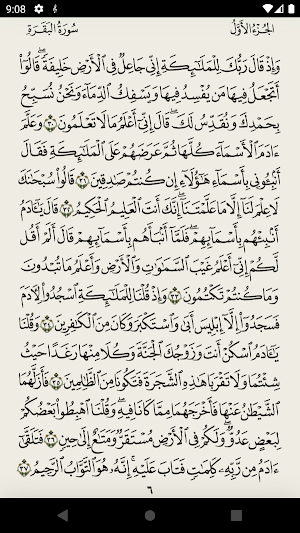 9:08
الجزء الأول سورة البقرة
وَإِذْ قَالَ رَبُّكَ لِلْمَلَٰٓئِكَةِ إِنِّي جَاعِلٌ فِي ٱلْأَرْضِ خَلِيفَةً ۖ قَالُوٓا۟
أَتَجْعَلُ فِيهَا مَن يُفْسِدُ فِيهَا وَيَسْفِكُ ٱلدِّمَآءَ وَنَحْنُ نُسَبِّحُ
بِحَمْدِكَ وَنُقَدِّسُ لَكَ ۖ قَالَ إِنِّيٓ أَعْلَمُ مَا لَا تَعْلَمُونَ ٣٠ وَعَلَّمَ
ءَادَمَ ٱلْأَسْمَآءَ كُلَّهَا ثُمَّ عَرَضَهُمْ عَلَى ٱلْمَلَٰٓئِكَةِ فَقَالَ
أَنۢبِـُٔونِي بِأَسْمَآءِ هَٰٓؤُلَآءِ إِن كُنتُمْ صَٰدِقِينَ ٣١ قَالُوا۟ سُبْحَٰنَكَ
لَا عِلْمَ لَنَآ إِلَّا مَا عَلَّمْتَنَآ ۖ إِنَّكَ أَنتَ ٱلْعَلِيمُ ٱلْحَكِيمُ ٣٢ قَالَ يَٰٓـَٔادَمُ
أَنۢبِئْهُم بِأَسْمَآئِهِمْ ۖ فَلَمَّآ أَنۢبَأَهُم بِأَسْمَآئِهِمْ قَالَ أَلَمْ أَقُل
لَّكُمْ إِنِّيٓ أَعْلَمُ غَيْبَ ٱلسَّمَٰوَٰتِ وَٱلْأَرْضِ وَأَعْلَمُ مَا تُبْدُونَ
وَمَا كُنتُمْ تَكْتُمُونَ ٣٣ وَإِذْ قُلْنَا لِلْمَلَٰٓئِكَةِ ٱسْجُدُوا۟ لِـَٔادَمَ
فَسَجَدُوٓا۟ إِلَّآ إِبْلِيسَ أَبَىٰ وَٱسْتَكْبَرَ وَكَانَ مِنَ ٱلْكَٰفِرِينَ ٣٤ وَقُلْنَا
يَٰٓـَٔادَمُ ٱسْكُنْ أَنتَ وَزَوْجُكَ ٱلْجَنَّةَ وَكُلَا مِنْهَا رَغَدًا حَيْثُ
شِئْتُمَا وَلَا تَقْرَبَا هَٰذِهِ ٱلشَّجَرَةَ فَتَكُونَا مِنَ ٱلظَّٰلِمِينَ ٣٥ فَأَزَلَّهُمَا
ٱلشَّيْطَٰنُ عَنْهَا فَأَخْرَجَهُمَا مِمَّا كَانَا فِيهِ ۖ وَقُلْنَا ٱهْبِطُوا۟ بَعْضُكُمْ
لِبَعْضٍ عَدُوٌّ ۖ وَلَكُمْ فِي ٱلْأَرْضِ مُسْتَقَرٌّ وَمَتَٰعٌ إِلَىٰ حِينٍ ٣٦ فَتَلَقَّىٰٓ
ءَادَمُ مِن رَّبِّهِۦ كَلِمَٰتٍ فَتَابَ عَلَيْهِ ۚ إِنَّهُۥ هُوَ ٱلتَّوَّابُ ٱلرَّحِيمُ ٣٧
٦